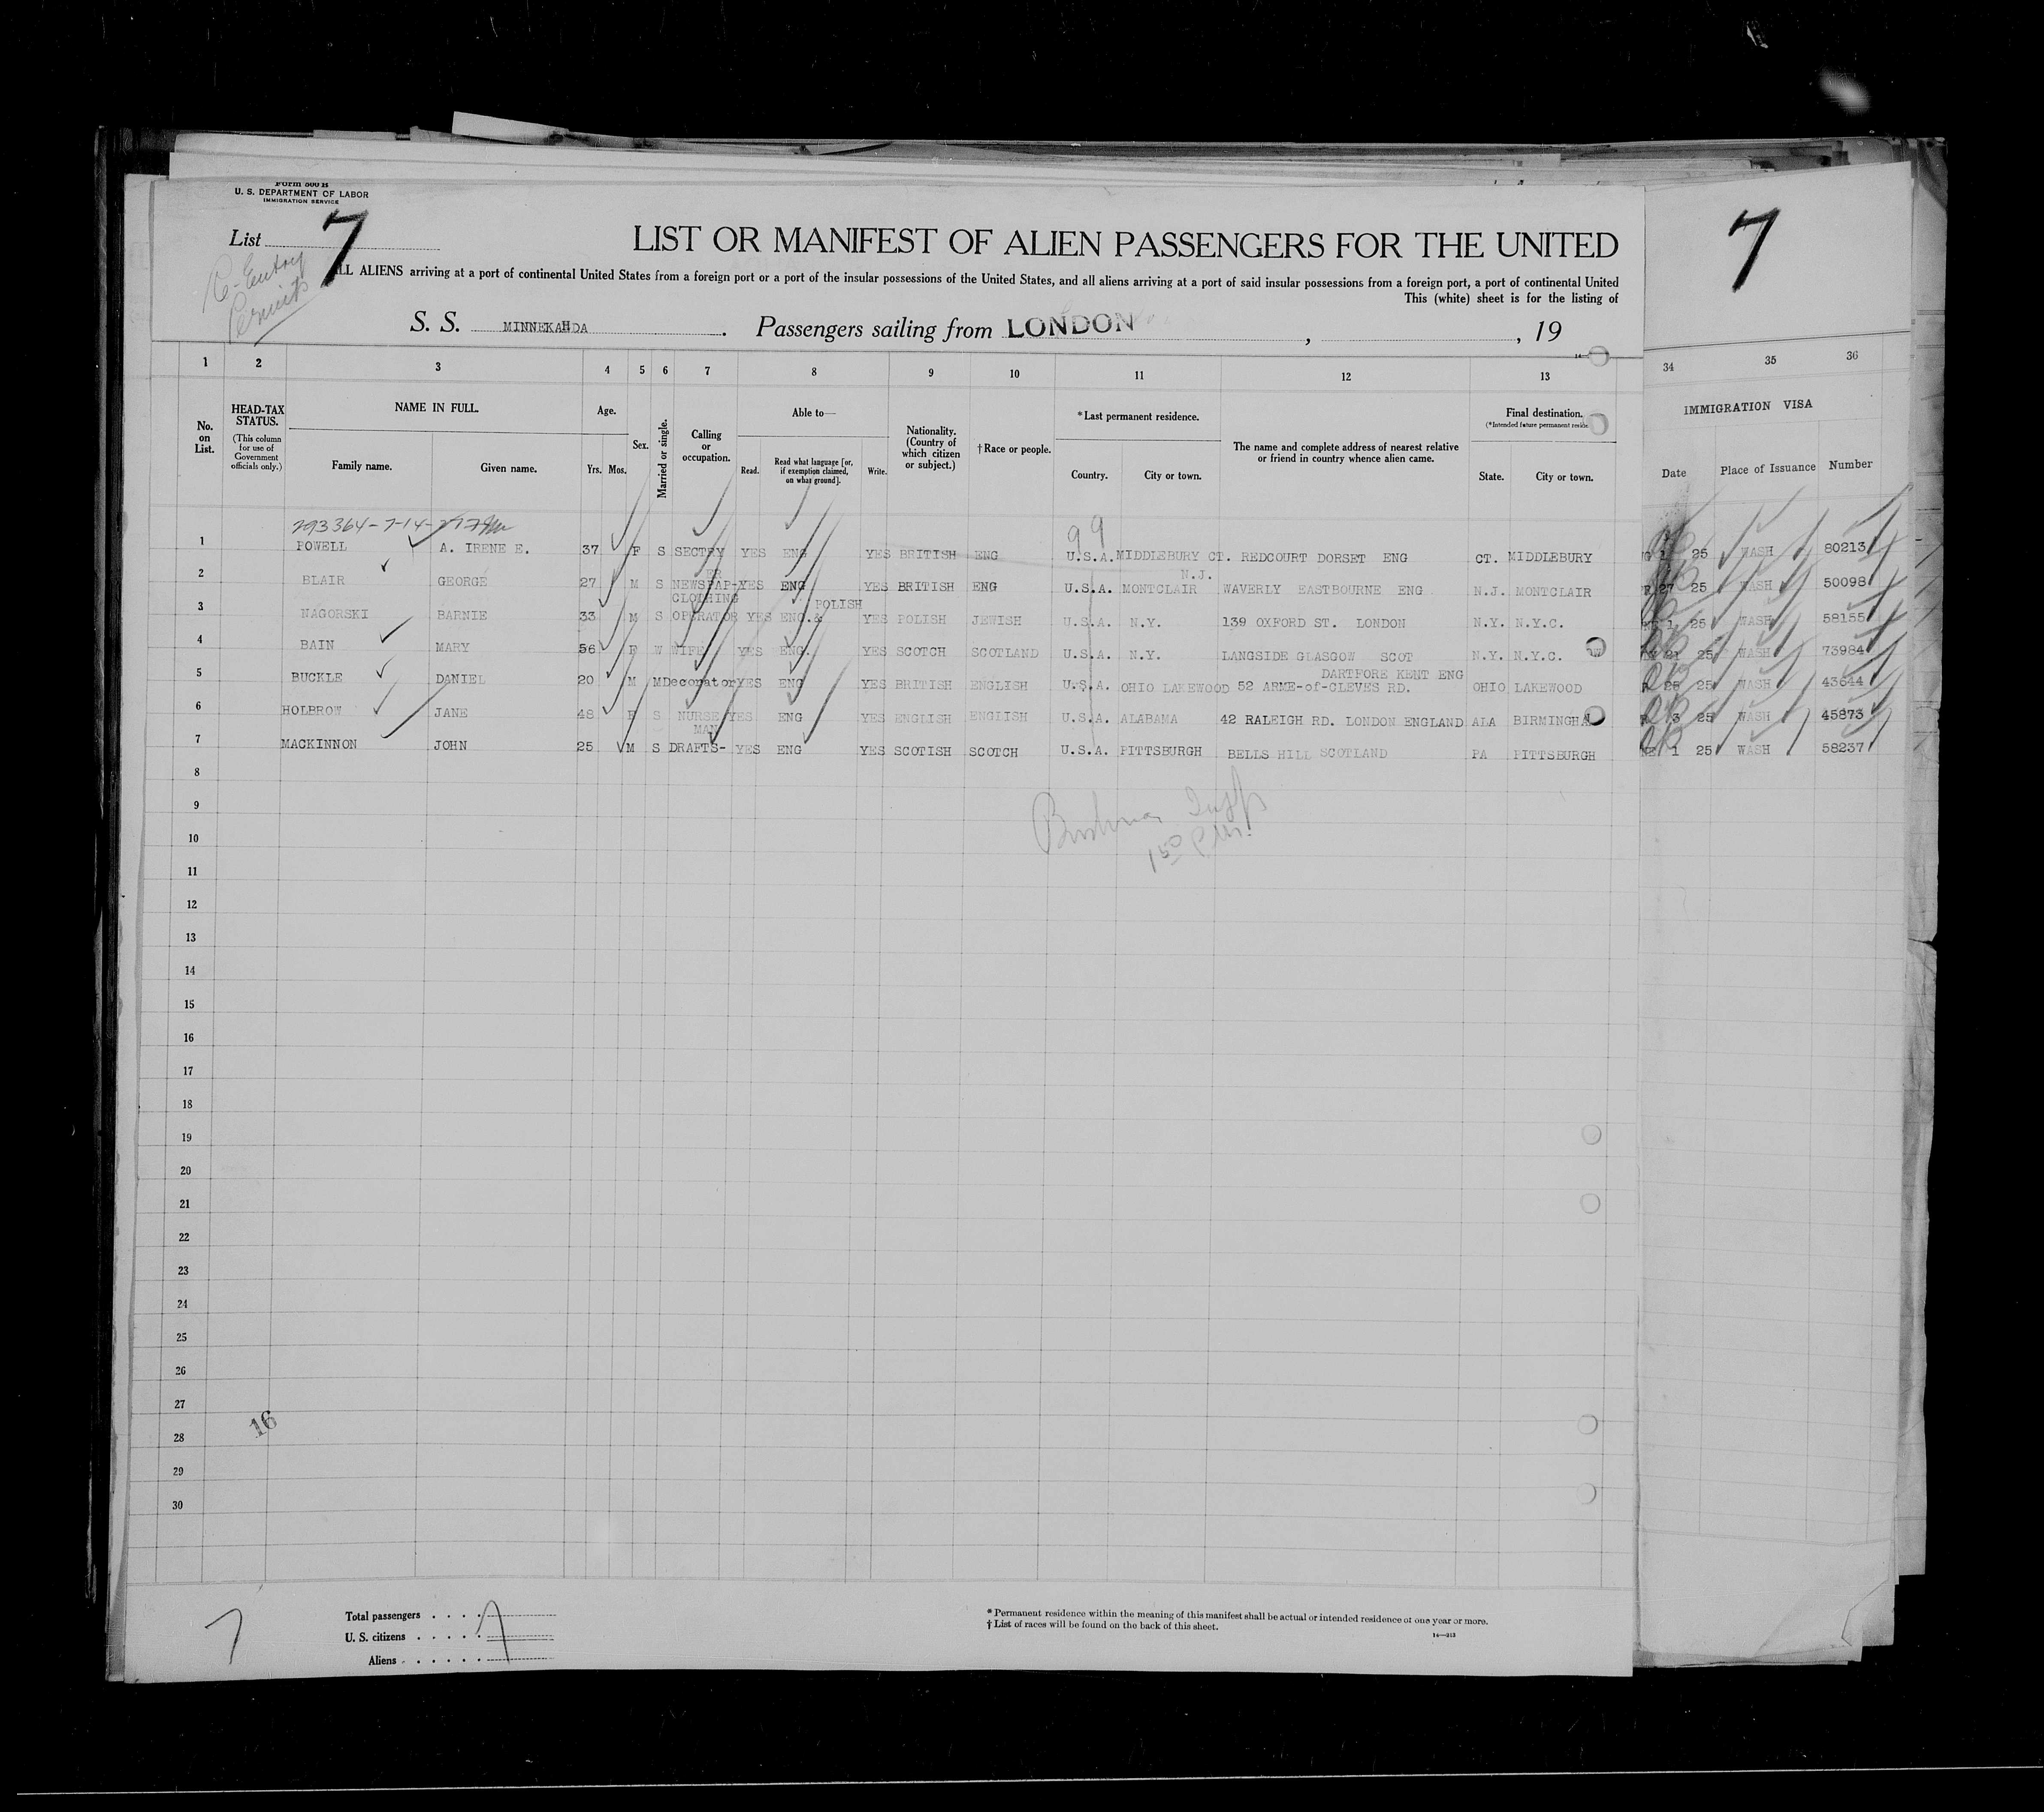 Form 500 B
U. S. DEPARTMENT OF LABOR
IMMIGRATION SERVICE
List 7
7
Re-Entry
Permits
LIST OR MANIFEST OF ALIEN PASSENGERS FOR THE UNITED
ALL ALIENS arriving at a port of continental United States from a foreign port or a port of the insular possessions of the United States, and all aliens arriving at a port of said insular possessions from a foreign port, a port of continental United
This (white) sheet is for the listing of
S. S. MINNEKAHDA. Passengers sailing from LONDON, , 19
1 2 3 4 5 6 7 8 9 10 11 12 13 34 35 36
No. on List.
HEAD-TAX STATUS. (This column for use of Government officials only.)
NAME IN FULL.
Family name. Given name.
Age.
Yrs. Mos.
Sex.
Married or single.
Calling or occupation.
Able to—
Read. Read what language [or, if exemption claimed, on what ground]. Write.
Nationality. (Country of which citizen or subject.)
† Race or people.
*Last permanent residence.
Country. City or town.
The name and complete address of nearest relative or friend in country whence alien came.
Final destination.
(*Intended future permanent resid
State. City or town.
IMMIGRATION VISA
Date Place of Issuance Number
99
1 POWELL A. IRENE E. 37 F S SECTRY YES ENG YES BRITISH ENG U.S.A. MIDDLEBURY CT. REDCOURT DORSET ENG CT. MIDDLEBURY G 1 25 WASH 80213
2 BLAIR GEORGE 27 M S NEWSPAP-ER YES ENG YES BRITISH ENG U.S.A. MONTCLAIR N.J. WAVERLY EASTBOURNE ENG N.J. MONTCLAIR 27 25 WASH 50098
3 NAGORSKI BARNIE 33 M S CLOTHING OPERATOR YES ENG.& POLISH YES POLISH JEWISH U.S.A. N.Y. 139 OXFORD ST. LONDON N.Y. N.Y.C. 1 25 WASH 58155
4 BAIN MARY 56 F W WIFE YES ENG. YES SCOTCH SCOTLAND U.S.A. N.Y. LANGSIDE GLASGOW SCOT N.Y. N.Y.C. 21 25 WASH 73984
5 BUCKLE DANIEL 20 M M Decorator YES ENG YES BRITISH ENGLISH U.S.A. OHIO LAKEWOOD 52 ARME-of-CLEVES RD. DARTFORE KENT ENG OHIO LAKEWOOD 25 WASH 43644
6 HOLBROW JANE 48 F S NURSE YES ENG YES ENGLISH ENGLISH U.S.A. ALABAMA 42 RALEIGH RD. LONDON ENGLAND ALA BIRMINGHA 3 25 WASH 45873
7 MACKINNON JOHN 25 M S DRAFTS-MAN YES ENG YES SCOTISH SCOTCH U.S.A. PITTSBURGH BELLS HILL SCOTLAND PA PITTSBURGH 1 25 WASH 58237
8
9
10
11
12
13
14
15
16
17
18
19
20
21
22
23
24
25
26
27
16
28
29
30
7
Total passengers
U. S. citizens
Aliens
* Permanent residence within the meaning of this manifest shall be actual or intended residence of one year or more.
† List of races will be found on the back of this sheet.